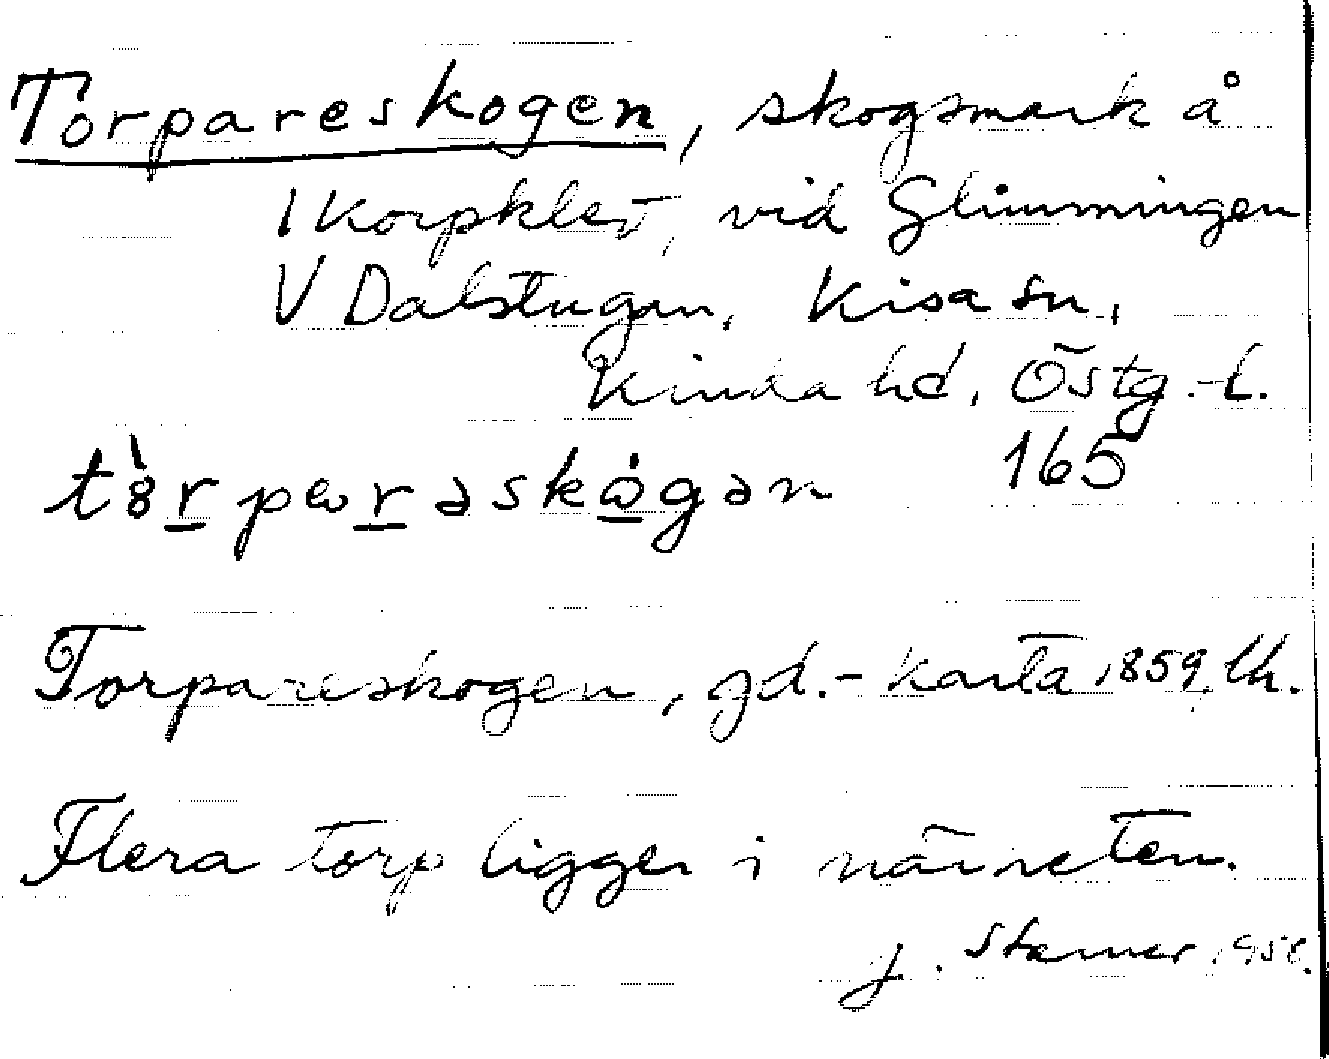 Torpareskogen, skogsmark å
1 Korpklev, vid Glimmingen
V Dalstugan, Kisa sn,
Kinda hd, Östg.-l.
165
Torpareskogen, gd.-karta 1859, Uh.
Flera torp ligger i närheten.
J. Stamer